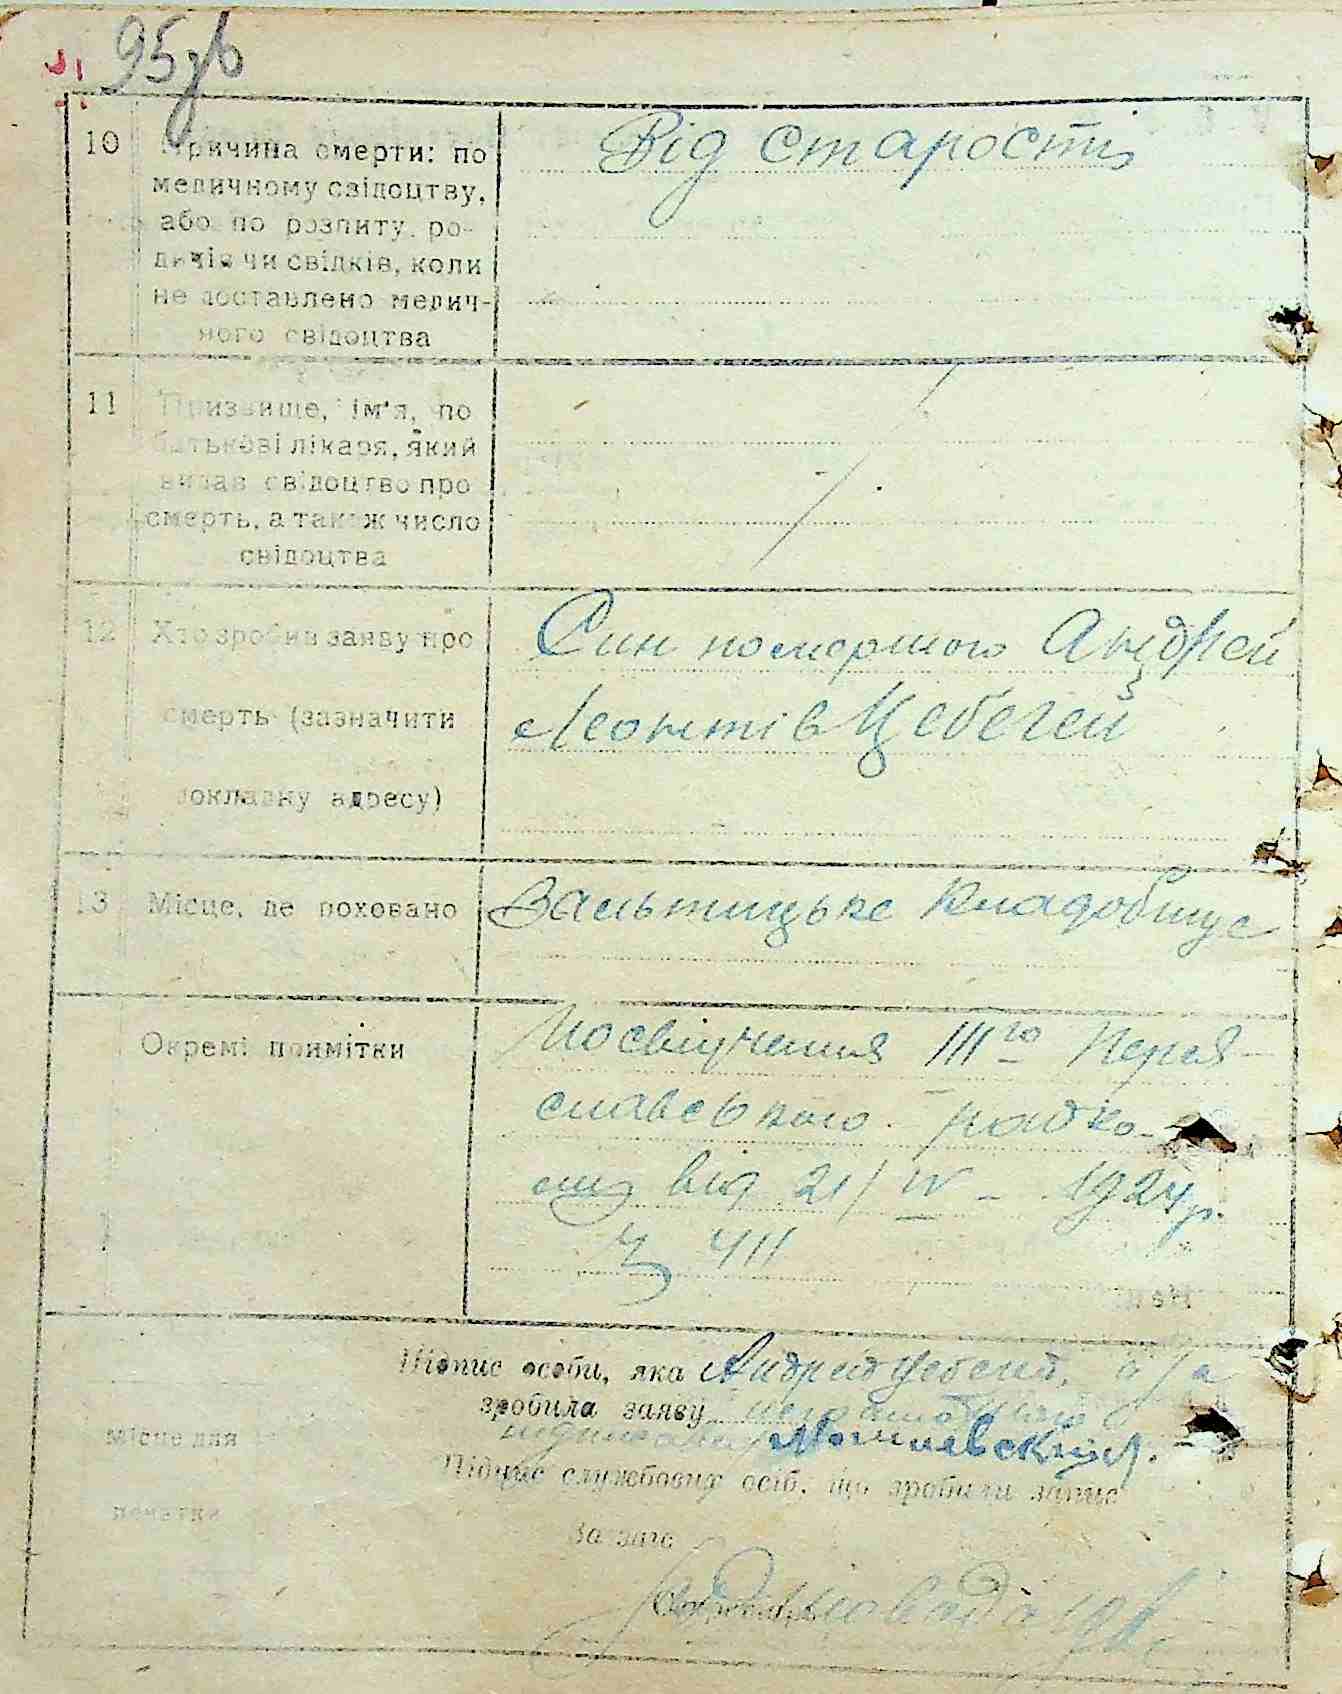 95зв
10
Причина смерти: по
медичному свідоцтву,
або по розпиту ро-
дичів чи свідків, коли
не доставлено медич-
ного свідоцтва
Від старости
11
Призвище, ім'я, по
батькові лікаря, який
видав свідоцтво про
смерть, а також число
свідоцтва
12
Хто зробив заяву про
смерть (зазначити
докладну адресу)
Син помершого Андрей
Леонтів Цебегей
13
Місце, де поховано
Зальтицьке кладобище
Окремі примітки
Посвідчення ІІІго Перея-
славського
від 21/IV - 1924 р.
ч 411
Підпис особи, яка Андрей Цебегей, а за
зробила заяву
Підпис службових осіб, що зробили запис
Зав загс
Місце для
печатки